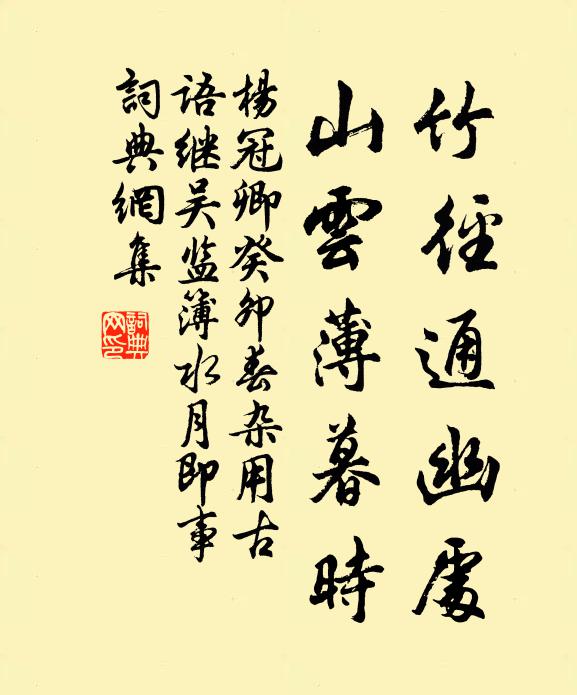 竹徑通幽處
山雲薄暮時
楊冠卿癸卯春杂用古
语继吴监簿水月即事
詞典網集
詞典
网印